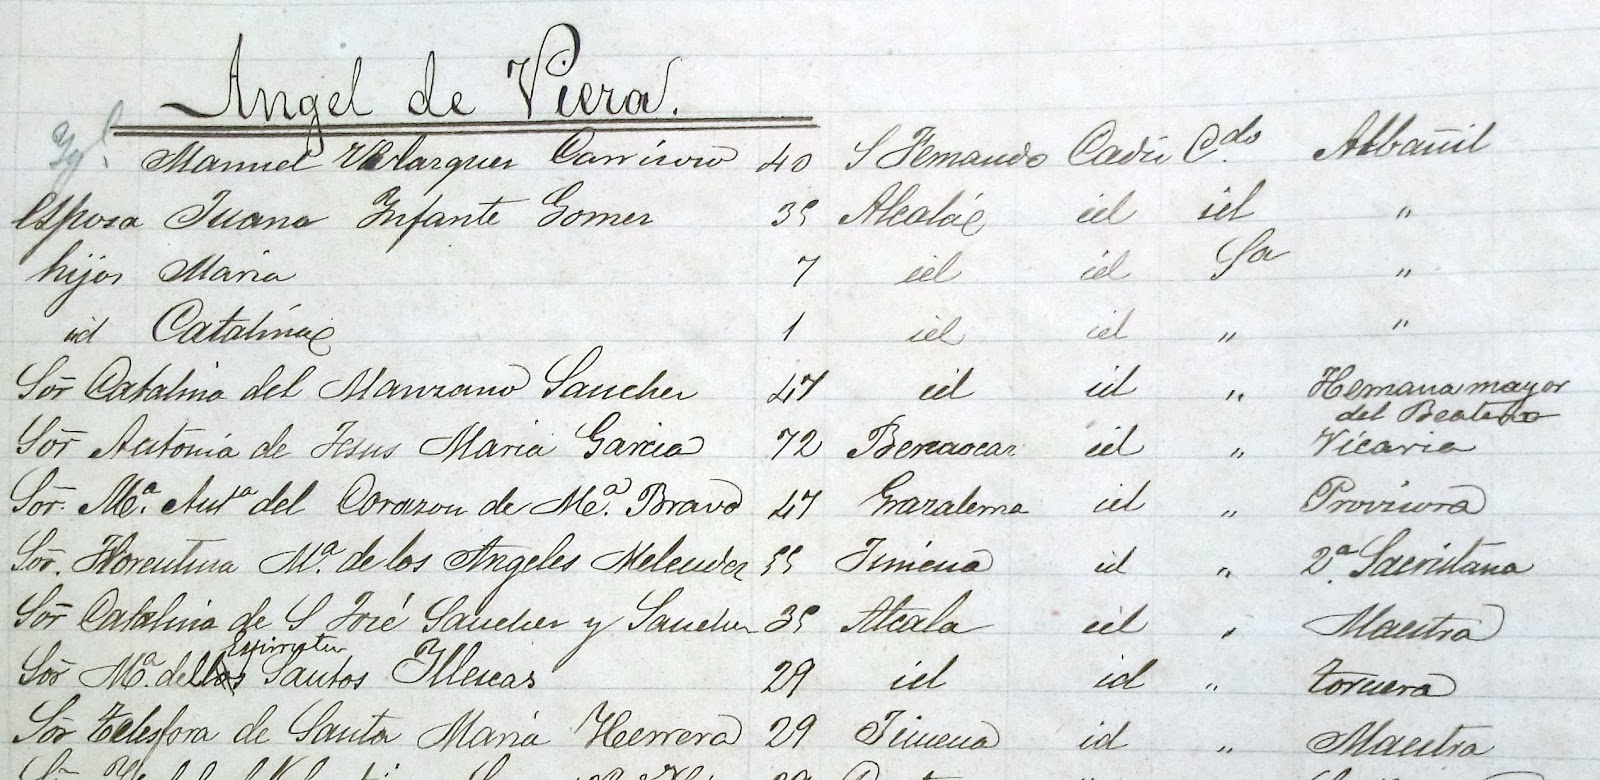 Angel de Viera.
Yg.l Manuel Velazquez Carrisoro 40 S Fernando Cadiz C.do Albañil
esposa Juana Infante Gomez 35 Alcalá id id "
hijos Maria 7 id id Sa "
id Catalina 1 id id " "
Sor Catalina del Manzano Sanchez 47 id id " Hermana mayor
del Beaterio
Sor Antonia de Jesus Maria Garcia 72 Benaocaz id " Vicaria
Sor. M.ª Antª del Corazon de M.ª Bravo 47 Grazalema id " Provisora
Sor. Florentina M.ª de los Angeles Melendez 55 Jimena id " 2.ª Sacristana
Sor Catalina de S José Sanchez y Sanchez 35 Alcala id " Maestra
Espiritu
Sor M.ª del Santos Illescas 29 id id " tornera
Sor Telesfora de Santa Maria Herrera 29 Jimena id " Maestra